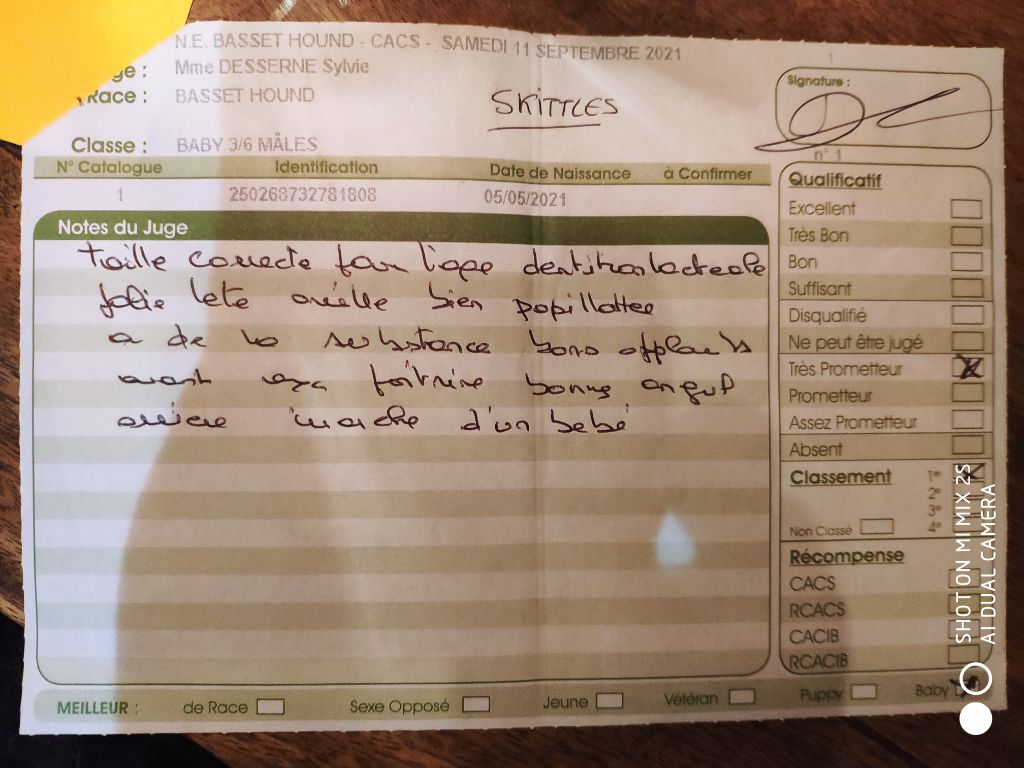 N.E. BASSET HOUND - CACS - SAMEDI 11 SEPTEMBRE 2021
ge : Mme DESSERNE Sylvie
Race : BASSET HOUND
SKITTLES
Classe : BABY 3/6 MÂLES
Signature :
n° 1
N° Catalogue Identification Date de Naissance à Confirmer
1 250268732781808 05/05/2021
Notes du Juge
taille correcte pour l'age dentition lacteale
jolie tete oreille bien papillottee
a de la substance bons applombs
avant poitrine bonne angul
arriere marche d'un bebé
Qualificatif
Excellent
Très Bon
Bon
Suffisant
Disqualifié
Ne peut être jugé
Très Prometteur
Prometteur
Assez Prometteur
Absent
Classement 1er
2e
3e
Non Classé 4e
Récompense
CACS
RCACS
CACIB
RCACIB
MEILLEUR : de Race Sexe Opposé Jeune Vétéran Puppy Baby
SHOT ON MI MIX 2S
AI DUAL CAMERA